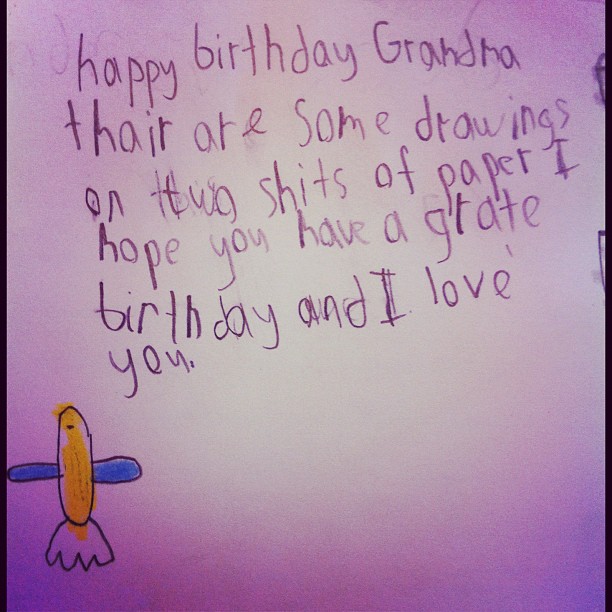 happy birthday Grandma
thair are some drawings
on two shits of paper I
hope you have a grate
birthday and I love
you.